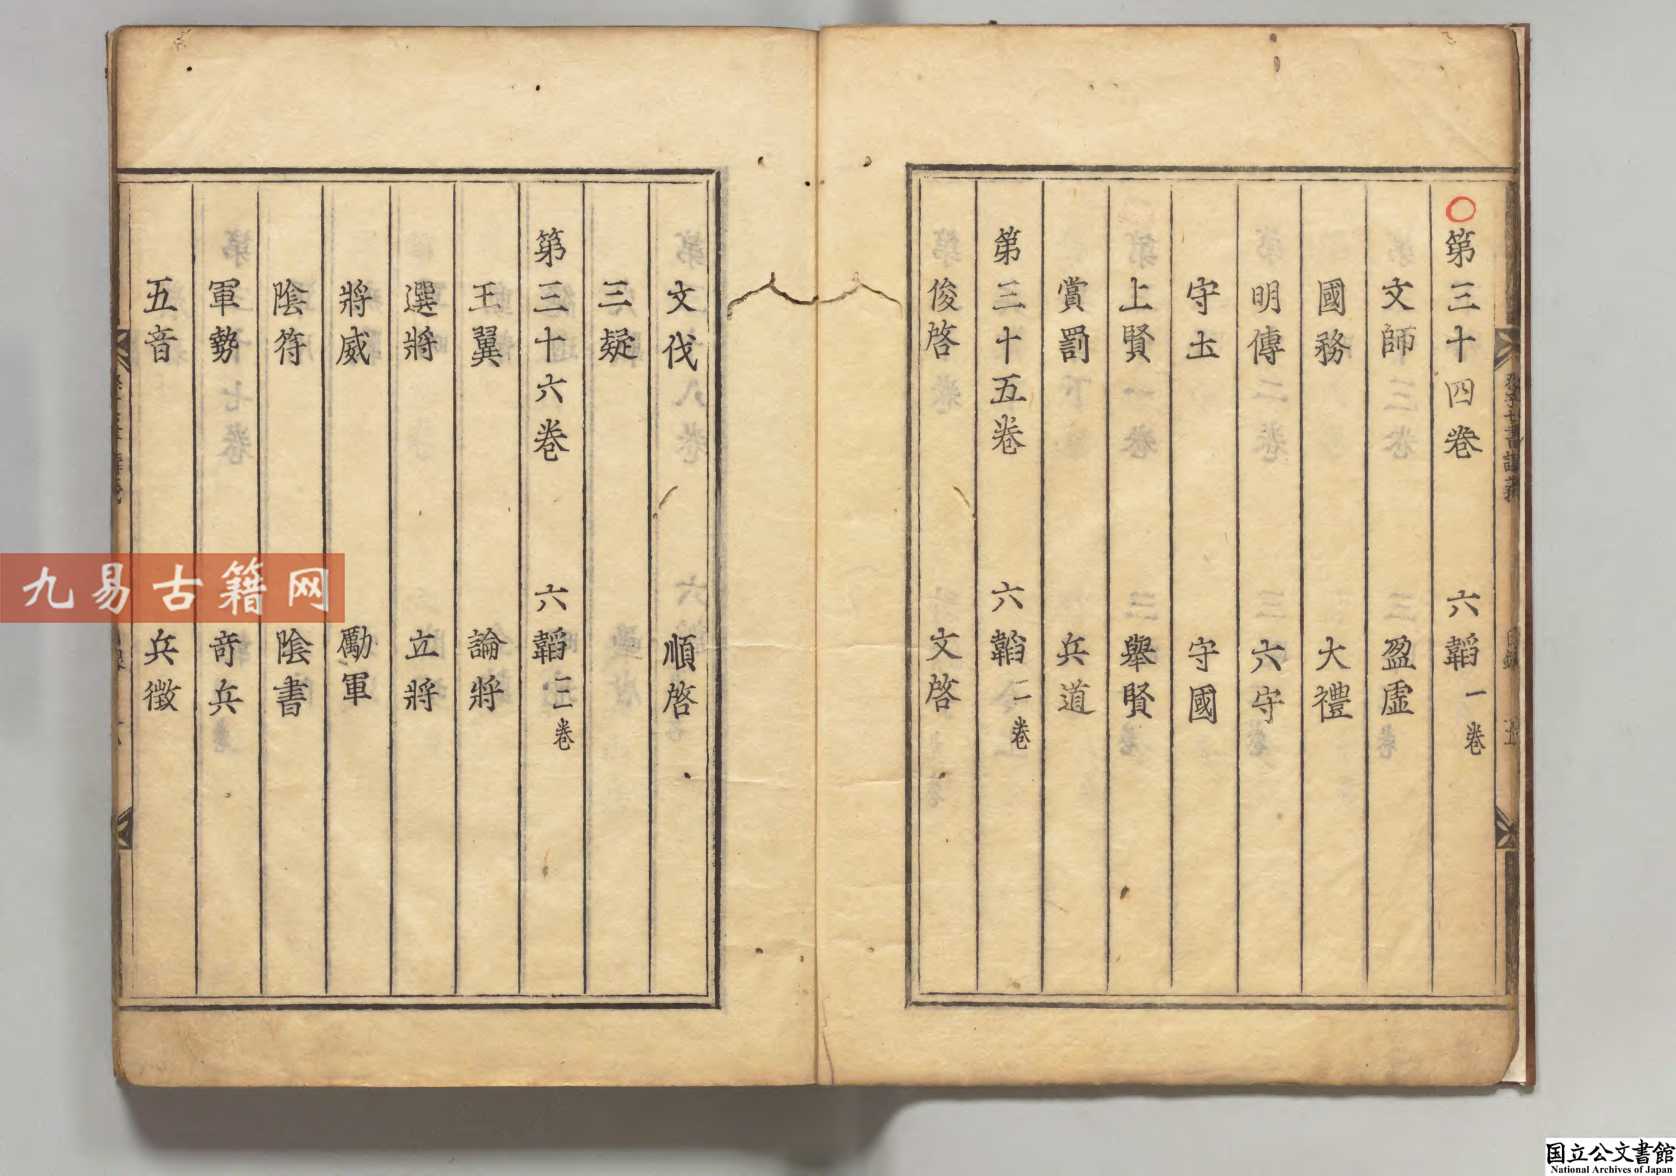 第三十四卷 六韜一卷
文師 盈虛
國務 大禮
明傳 六守
守土 守國
上賢 舉賢
賞罰 兵道
第三十五卷 六韜二卷
俊啓 文啓
文伐 順啓
三疑
第三十六卷 六韜三卷
王翼 論將
選將 立將
將威 勵軍
陰符 陰書
軍勢 奇兵
五音 兵徵
九易古籍网
国立公文書館
National Archives of Japan